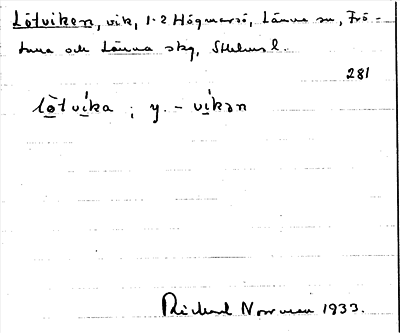 Lötviken, vik, 1·2 Högmarsö, Länna sn, Frö-
tuna och Länna skg, Sthlms l.
281
lö̀tvíka ; y. - víkən
Rickard Norrman 1933.